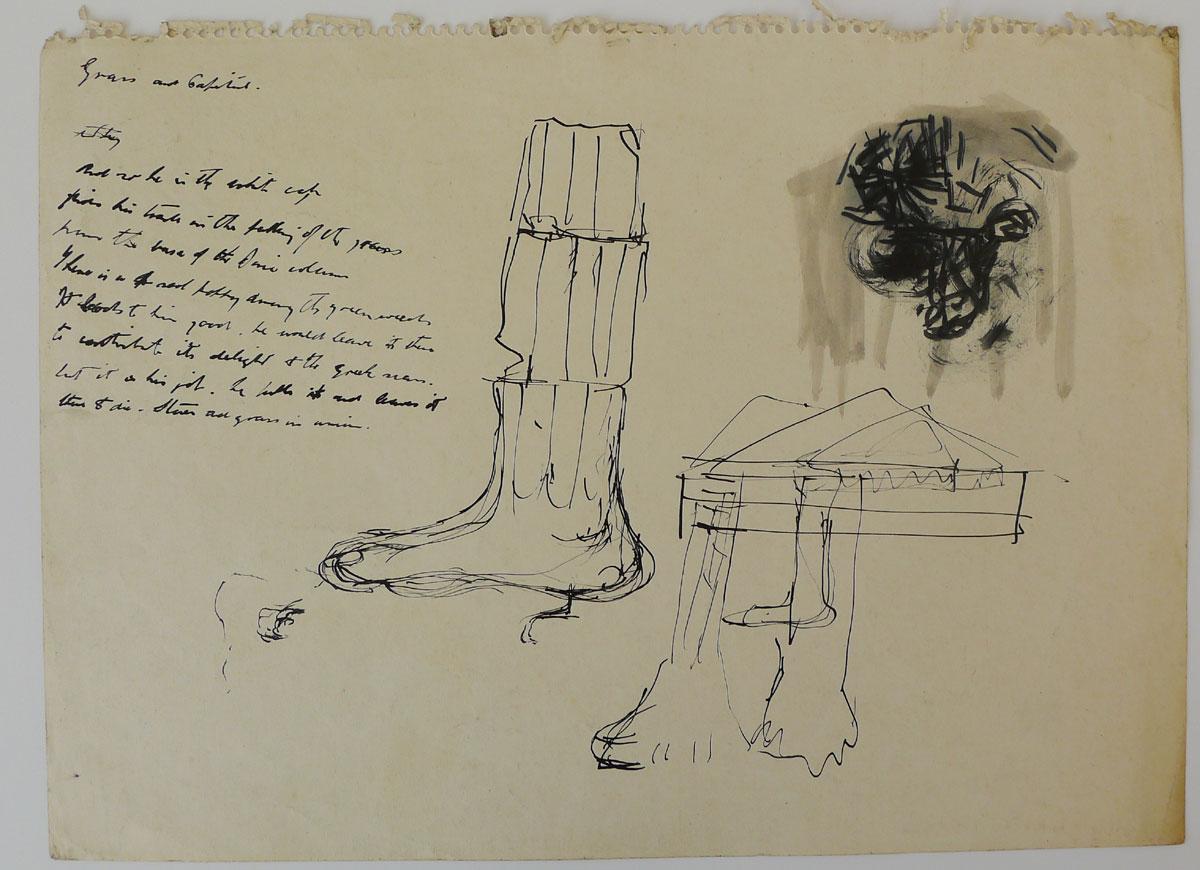 Grass and Capital.
And so he in the white cap
finds his task in the pulling of the grass
from the base of the Doric column
There is a red poppy among the green weeds
It looks to him good. he would leave it then
to contribute its delight to the greek scene.
but it is his job. he pulls it and leaves it
then to die. Stones and grass in union.